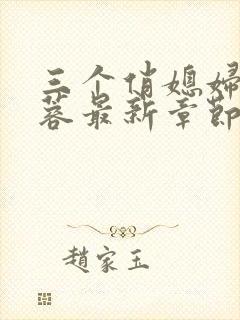 三个俏媳妇
蓉最新章節
趙家玉